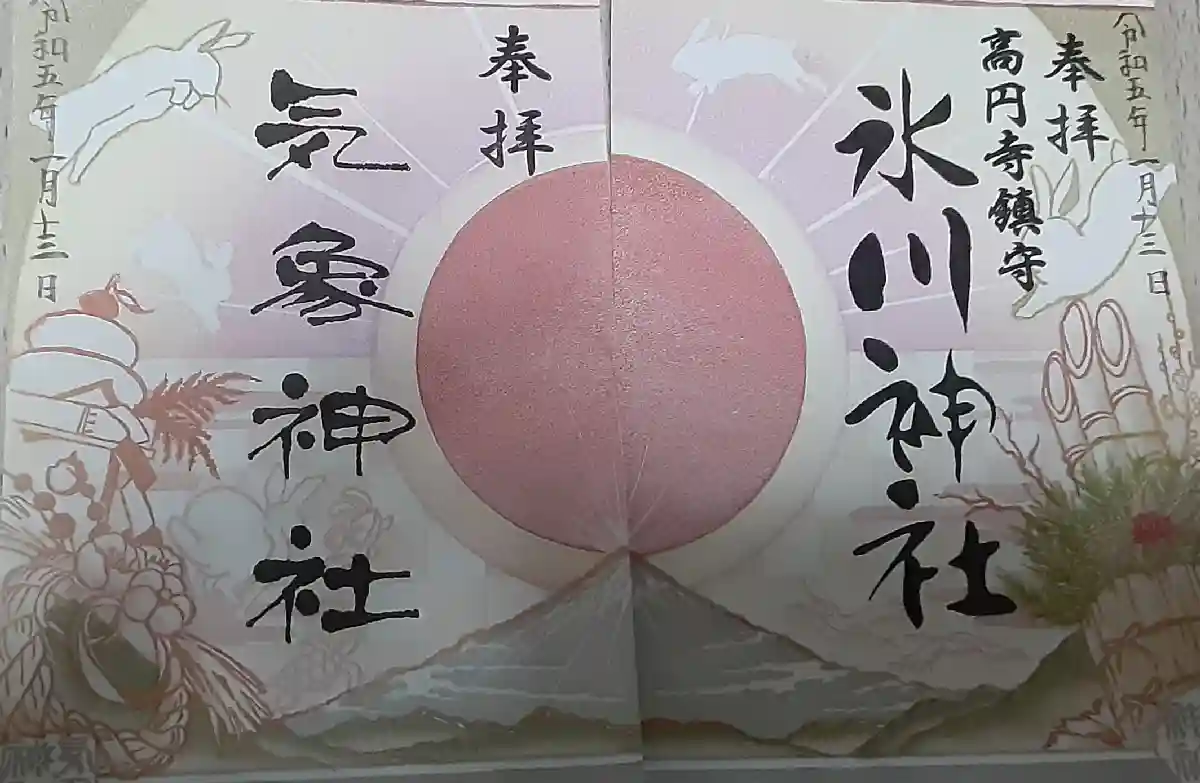 令和五年一月十三日
奉拝
高円寺鎮守
氷川神社
奉拝
気象神社
令和五年一月十三日